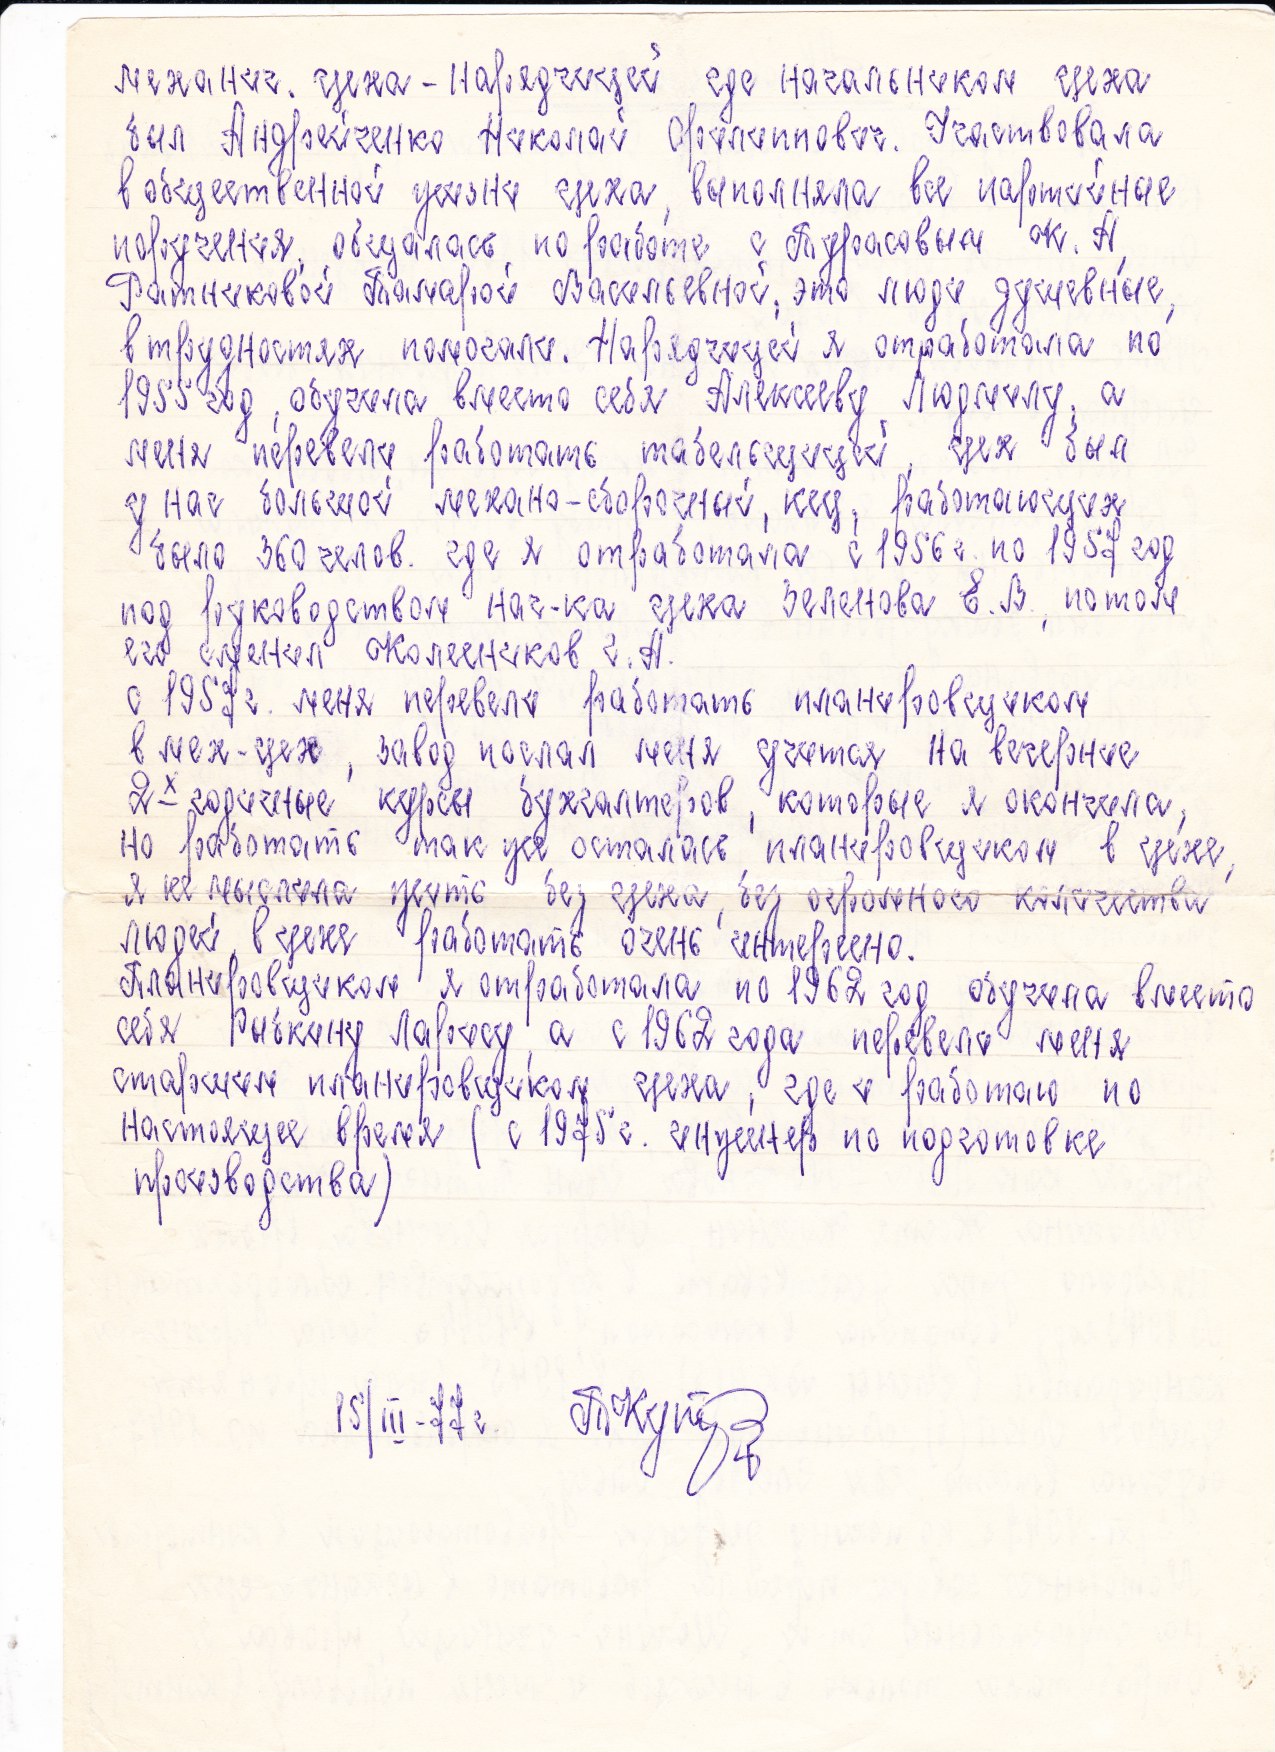 механич. цеха – нарядчицей где начальником цеха
был Андрейченко Николай Филиппович. Участвовала
в общественной жизни цеха, выполняла все партийные
поручения, общалась по работе с Турасовым Ж. А,
Ратниковой Тамарой Васильевной, это люди душевные,
в трудностях помогали. Нарядчицей я отработала по
1955 год, обучила вместо себя Алексееву Людмилу, а
меня перевели работать табельщицей, цех был
у нас большой механо-сборочный, кец, работающих
было 360 челов. где я отработала с 1956 г. по 1957 год
под руководством нач-ка цеха Зеленова Е. В., потом
его сменил Колесников г. А.
с 1957 г. меня перевели работать планировщиком
в мех-цех, завод послал меня учится на вечерние
2х годичные курсы бухгалтеров, которые я окончила,
но работать так же осталась планировщиком в цехе,
я не мыслила жить без цеха, без огромного количества
людей, в цехе работать очень интересно.
Планировщиком я отработала по 1962 год обучила вместо
себя Рыькину Ларису, а с 1962 года перевели меня
старшим планировщиком цеха, где и работаю по
настоящее время (с 1975 г. инженер по подготовке
производства)
15/III-77 г.